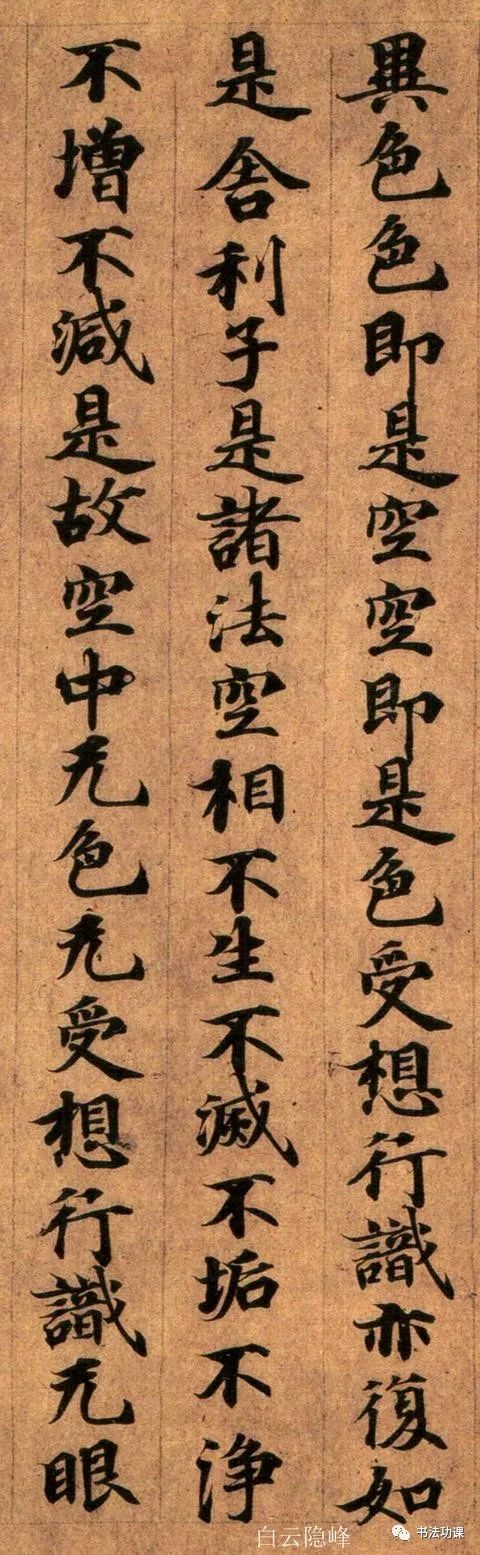 異色色即是空空即是色受想行識亦復如
是舍利子是諸法空相不生不滅不垢不浄
不增不減是故空中无色无受想行識无眼
白云隐峰
书法功课